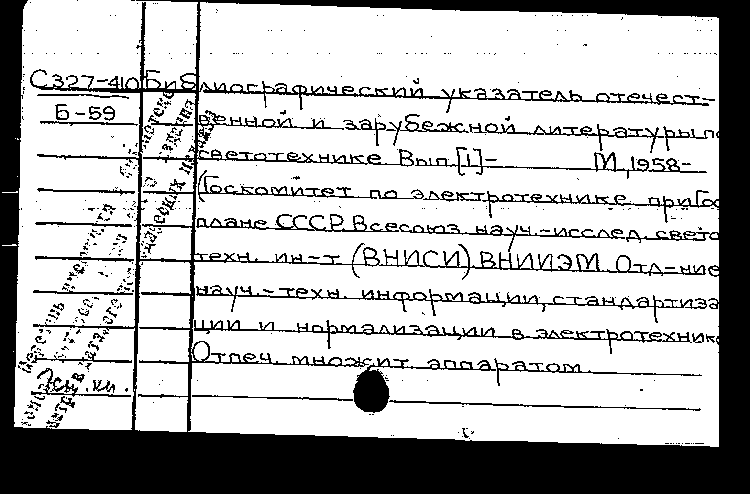 С327-410 Библиографический указатель отечест-
Б-59 венной и зарубежной литературы по
светотехнике Вып.[1]- М.,1958-
(Госкомитет по электротехнике при Гос
плане СССР. Всесоюз. науч.-исслед. свето
техн. ин-т (ВНИСИ) ВНИИЭМ. Отд-ние
науч.-техн. информации, стандартиза
ции и нормализации в электротехнике
Отпеч. множит. аппаратом.